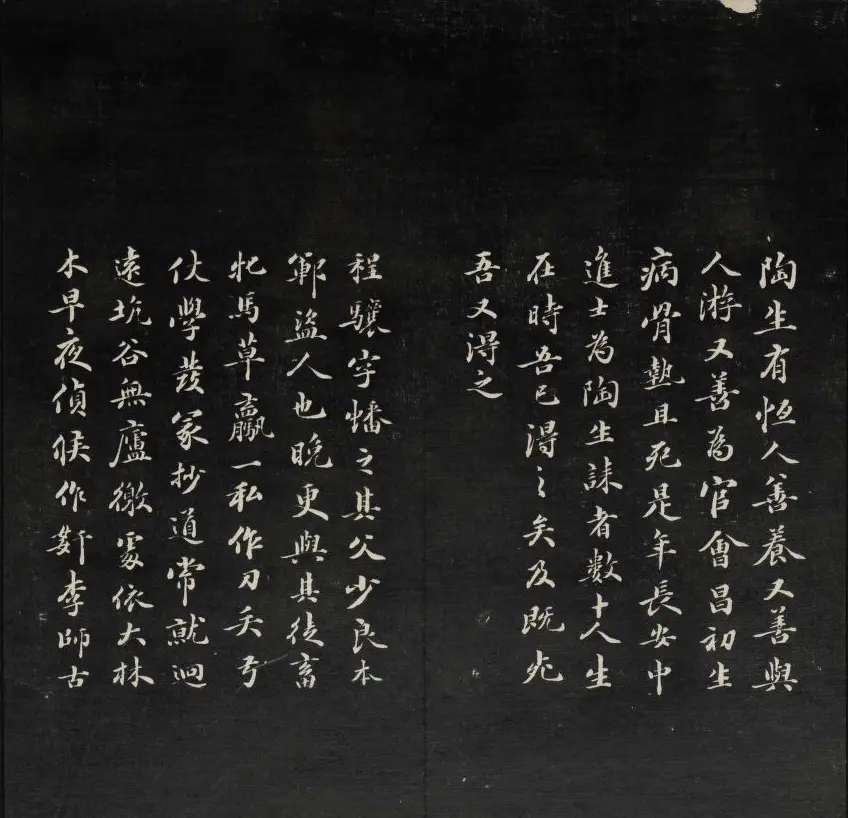 陶生有恆人善養又善與
人游又善為官會昌初生
病骨熱且死是年長安中
進士為陶生誄者數十人生
在時吾已得之矣及既死
吾又得之
程驤字蟠之其父少良本
鄆盜人也晚更與其徒畜
牝馬草驘一私作刀矢弓
仗學發冢抄道常就迥
遠坑谷無廬徼處依大林
木早夜偵候作姧李師古